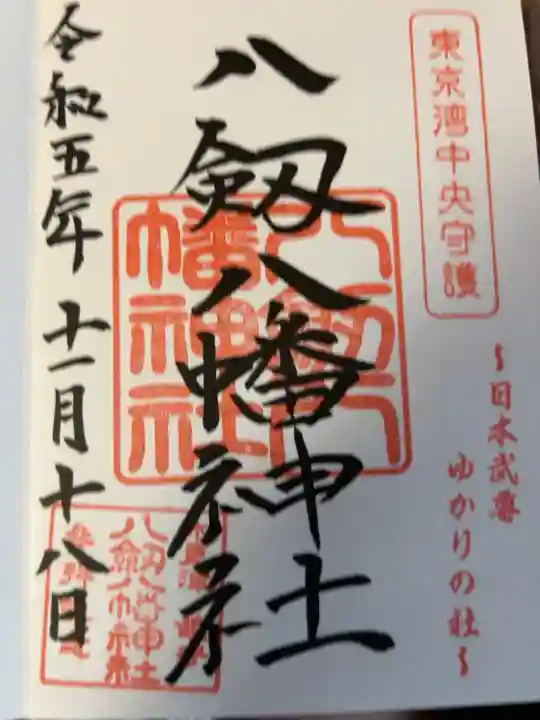 東京湾中央守護
～日本武尊
ゆかりの社～
八剱八幡神社
八剱八幡神社
令和五年十一月十八日
八剱八幡神社